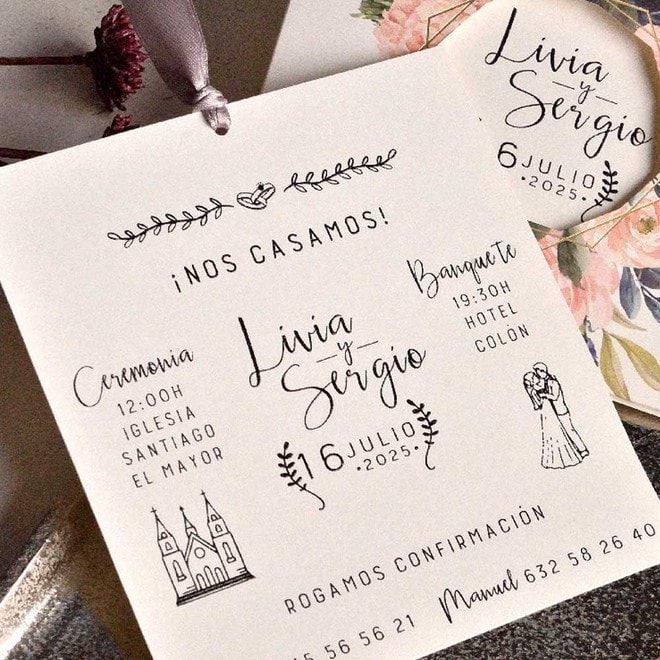 ¡NOS CASAMOS!
Ceremonia
12:00H
IGLESIA
SANTIAGO
EL MAYOR
Livia
y
Sergio
16 JULIO
·2025·
Banquete
19:30H
HOTEL
COLÓN
ROGAMOS CONFIRMACIÓN
5 56 56 21
Manuel 632 58 26 40
Livia
y
Sergio
6 JULIO
·2025·